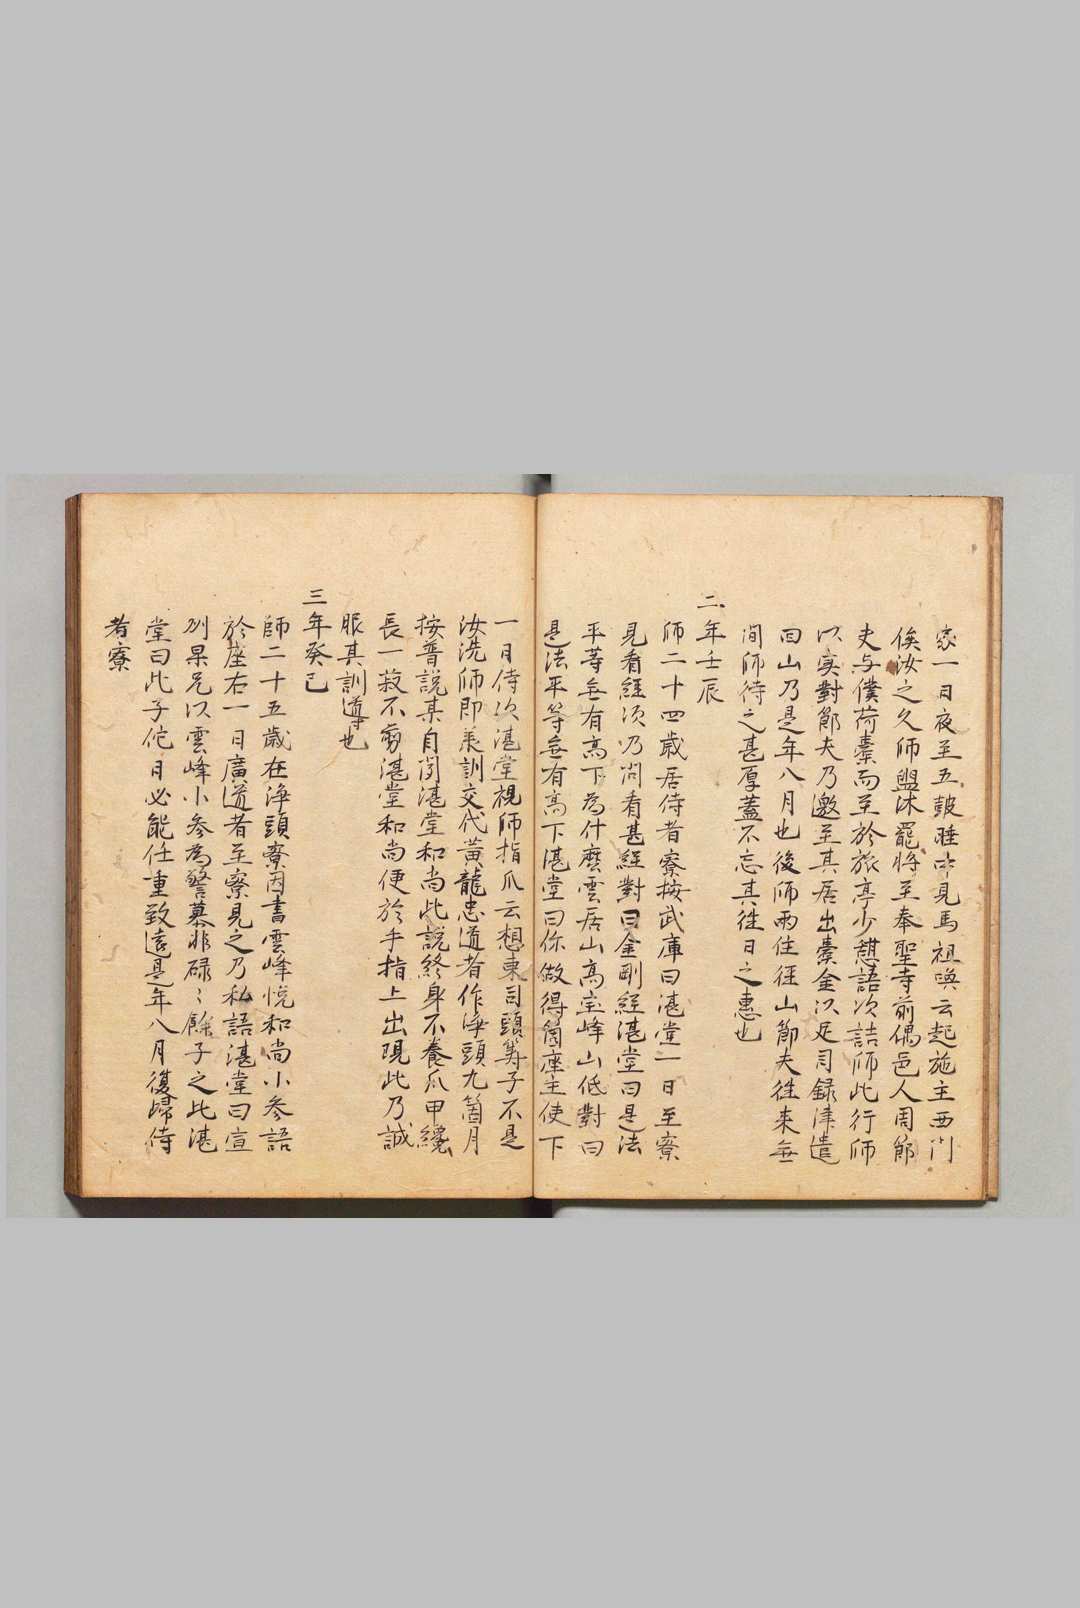 家一日夜至五皷睡中見馬祖喚云起施主西門
俟汝之久師盥沐罷將至奉聖寺前偶邑人周節
夫与僕荷橐而至於旅亭少憇語次詰師此行師
以实對節夫乃邀至其居出橐金以足司録津遣
回山乃是年八月也後師兩住徑山節夫徃来無
間師待之甚厚蓋不忘其徃日之惠也
二年壬辰
師二十四歲居侍者寮按武庫曰湛堂一日至寮
見看経次乃问看甚経對曰金剛経湛堂曰是法
平等無有高下為什麽雲居山高宝峰山低對曰
是法平等無有高下湛堂曰你做得箇座主使下
一日侍次湛堂視師指爪云想東司頭籌子不是
汝洗師即羕訓交代黄龍忠道者作淨頭九箇月
按普説某自聞湛堂和尚此説終身不養爪甲纔
長一菽不剪湛堂和尚便於手指上出現此乃誠
服其訓導也
三年癸巳
師二十五歲在淨頭寮因書雲峰悦和尚小参語
於座右一日廣道者至寮見之乃私語湛堂曰宣
州杲兄以雲峰小参為警慕非碌〻餘子之比湛
堂曰此子佗日必能任重致遠是年八月復歸侍
者寮